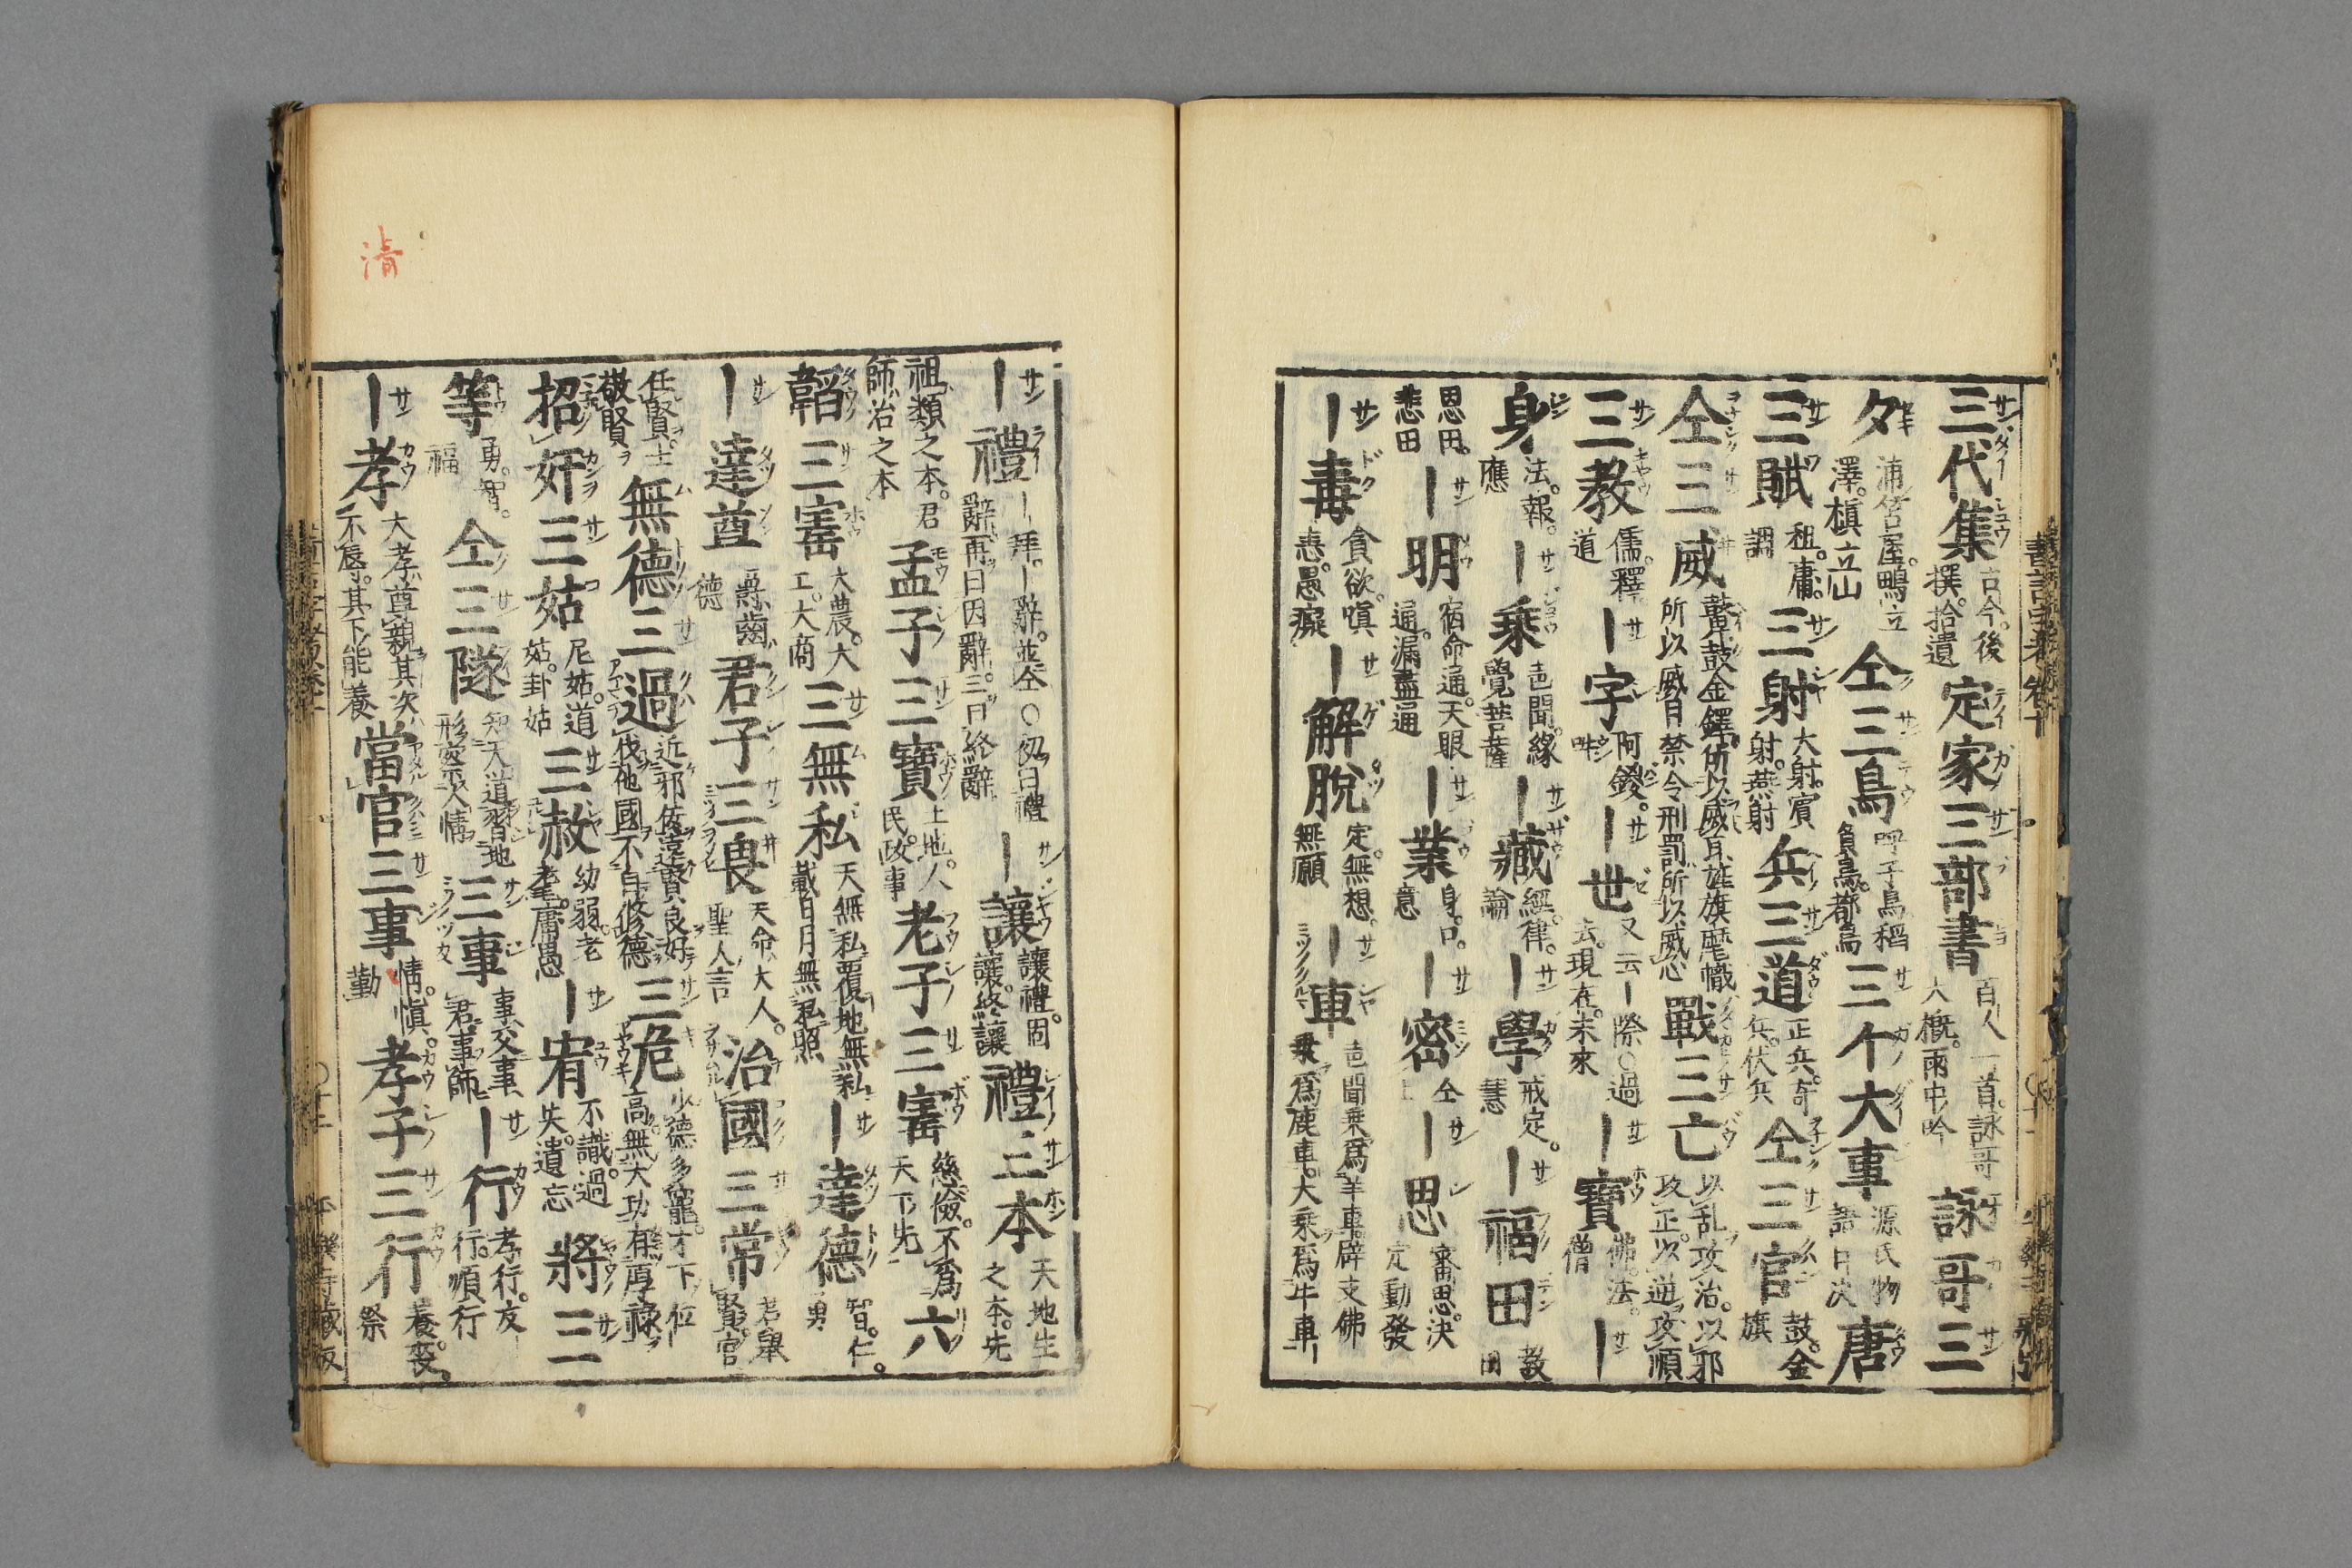 三代集 古今。後撰。拾遺 定家三部書 百人一首。詠哥大概。雨中吟 詠哥三
夕 浦笘屋。鴫立澤。槇立山 仝三鳥 呼子鳥 稻負鳥。都鳥 三个大事 源氏物語 唐
三賦 租。庸。調 三射 大射。賓射。燕射 兵三道 正兵。奇兵。伏兵 仝三官 鼓。金旗
仝三威 鼙鼓金鐸所以威耳旌旗麾幟所以威目禁令刑罰所以威心 戰三亡 以乱攻治。以邪攻正。以逆攻順
三教 儒。釋道 ー字 阿鑁。吽 ー世 又云ー際○過去。現在。未來 ー寶 佛。法。僧 ー
身 法。報。應 ー乘 声聞。緣覺。菩薩 ー藏 經。律。論 ー學 戒定。慧 ー福田 敎田
恩田。悲田 ー明 宿命通。天眼通。漏盡通 ー業 身。口。意 ー密 仝上 ー思 審思。決定 動發
ー毒 貪欲。嗔恚。愚癡 ー解脫 定。無想。無願 ー車 声聞乗爲羊車。辟支佛乗爲鹿車。大乘爲牛車
ー禮 ー拜。ー辭。並仝○初曰禮辭再曰因辭。三曰終辭 ー讓 讓禮。固讓。終讓 禮三本 天地生之本。先
祖類之本。君師治之本 孟子三寶 土地。人民。政事 老子三寚 慈儉。不爲天下先 六
韜三寚 大農。大工。大商 三無私 天無私覆地無私載日月無私照 ー達德 智。仁。勇
ー達尊 爵齒德 君子三畏 天命大人。聖人言 治國三常 君舉賢。官
任賢。士敬賢 無德三過 近邪佞遠賢良好伐他國不自修德 三危 少德多寵。才下位高。無大功有厚祿
招奸三姑 尼姑。道姑。卦姑 三赦 幼弱。老耄。庸愚 ー宥 不識。過失。遺忘 將三
等 勇。智。福 仝三隧 知天道習地形 人情 三事 事父事君事師 ー行 孝行。友行。順行
ー孝 大孝尊親其次不辱。其下能養 當官三事 情。愼。勤 孝子三行 養。喪。祭
平樂寺藏板
清